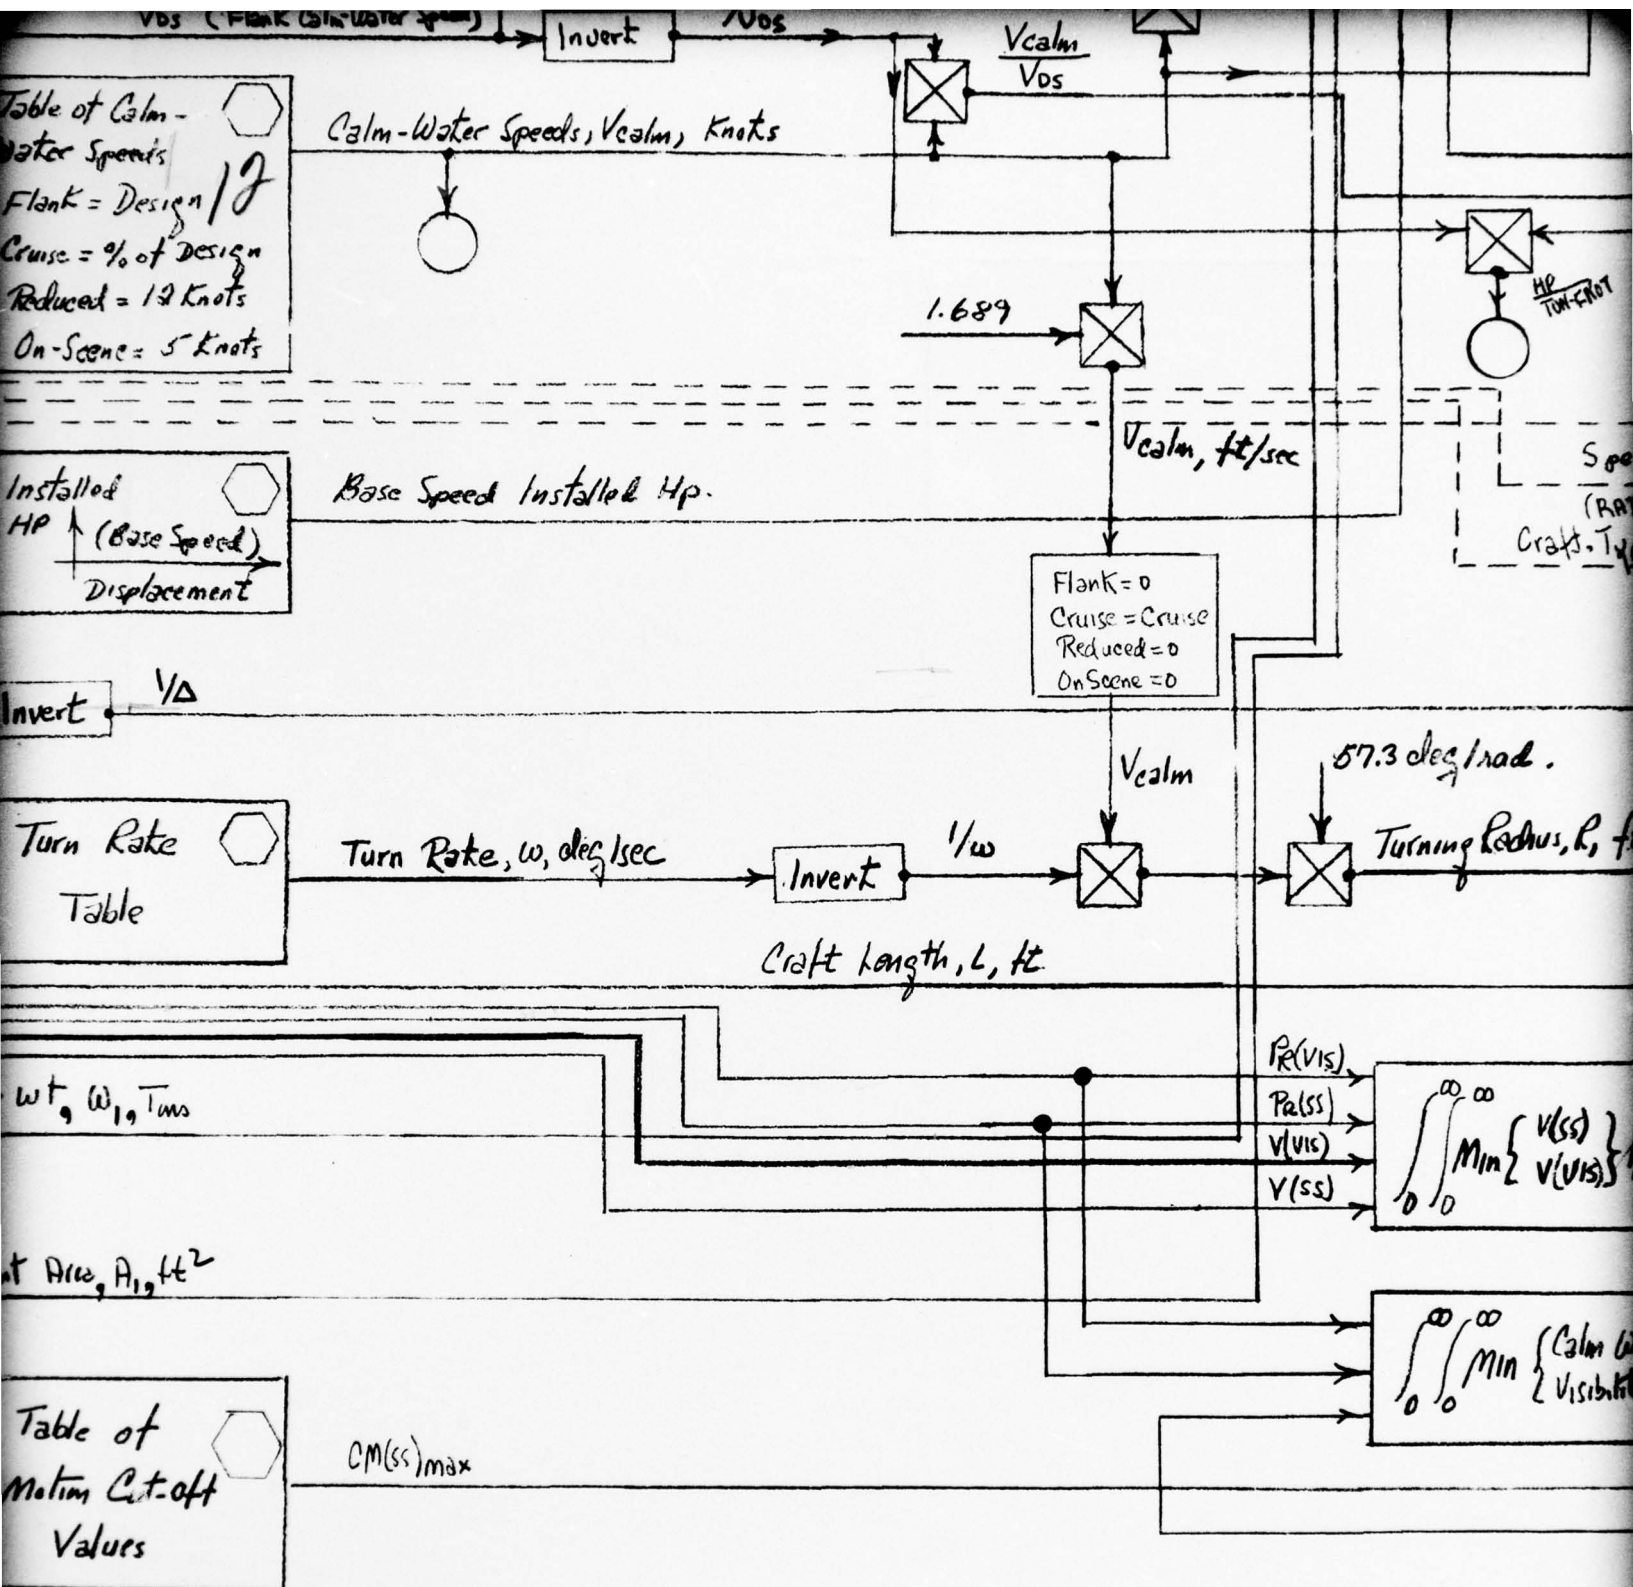 VDS (Flank Calm-Water Speed)
Invert
1/VDS
Vcalm
VDS
Table of Calm-
Water Speeds
Flank = Design
12
Cruise = % of Design
Reduced = 12 Knots
On-Scene = 5 Knots
Calm-Water Speeds, Vcalm, Knots
HP
TON-KNOT
1.689
Vcalm, ft/sec
Installed
HP
(Base Speed)
Displacement
Base Speed Installed Hp.
Flank = 0
Cruise = Cruise
Reduced = 0
OnScene = 0
Spe
(RAT
Craft, Ty
Invert
1/Δ
Vcalm
57.3 deg/rad.
Turn Rate
Table
Turn Rate, ω, deg/sec
Invert
1/ω
Turning Radius, R, f
Craft Length, L, ft
PR(VIS)
Pa(SS)
V(VIS)
V(SS)
∞ ∞
Min { V(SS)
V(VIS) }
0 0
wt, W1, Tms
nt Area, A1, ft²
∞ ∞
Min { Calm W
Visibilit
0 0
Table of
Motion Cut-off
Values
CM(SS)max